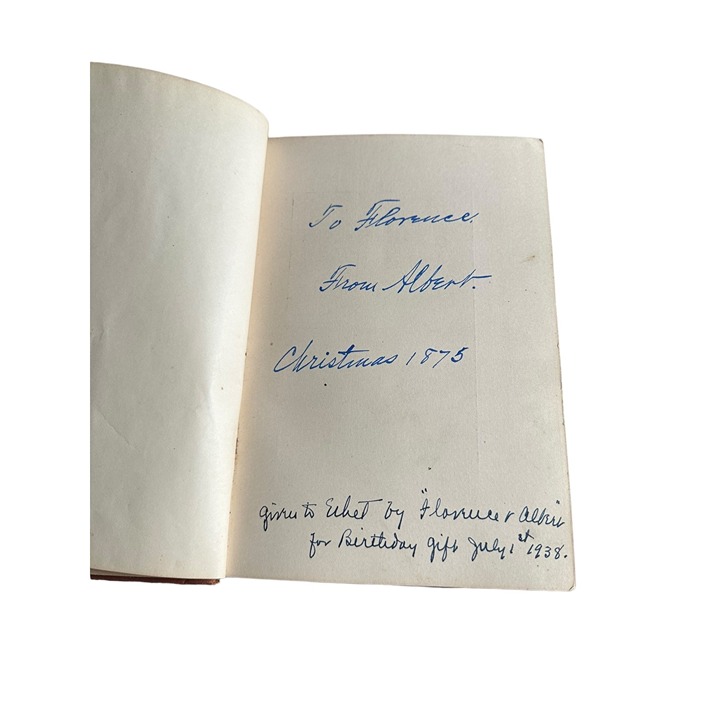 To Florence.
From Albert.
Christmas 1875
given to Ethel by "Florence & Albert"
for Birthday gift July 1st 1938.